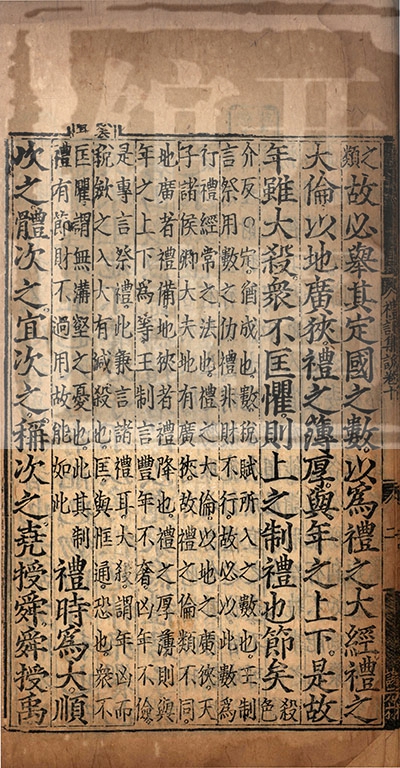 之類故必舉其定國之數以爲禮之大經禮之
大倫以地廣狹禮之薄厚與年之上下是故
年雖大殺衆不匡懼則上之制禮也節矣殺色
介反○定猶成也數稅賦所入之數也王制
言祭用數之仂禮非財不行故必以此數爲
行禮經常之法也禮之大倫以地之廣狹天
子諸侯卿大夫地有廣狹故禮之倫類不同
地廣者禮備地狹者禮降也禮之厚薄則與
年之上下爲等王制言豐年不奢凶年不儉
是專言祭禮此兼言諸禮耳大殺謂年凶而
稅斂之入大有減殺也匡與恇通恐也衆不
匡懼謂無溝壑之憂也此其制
禮有節財不過用故能如此
禮時爲大順
次之體次之宜次之稱次之堯授舜舜授禹